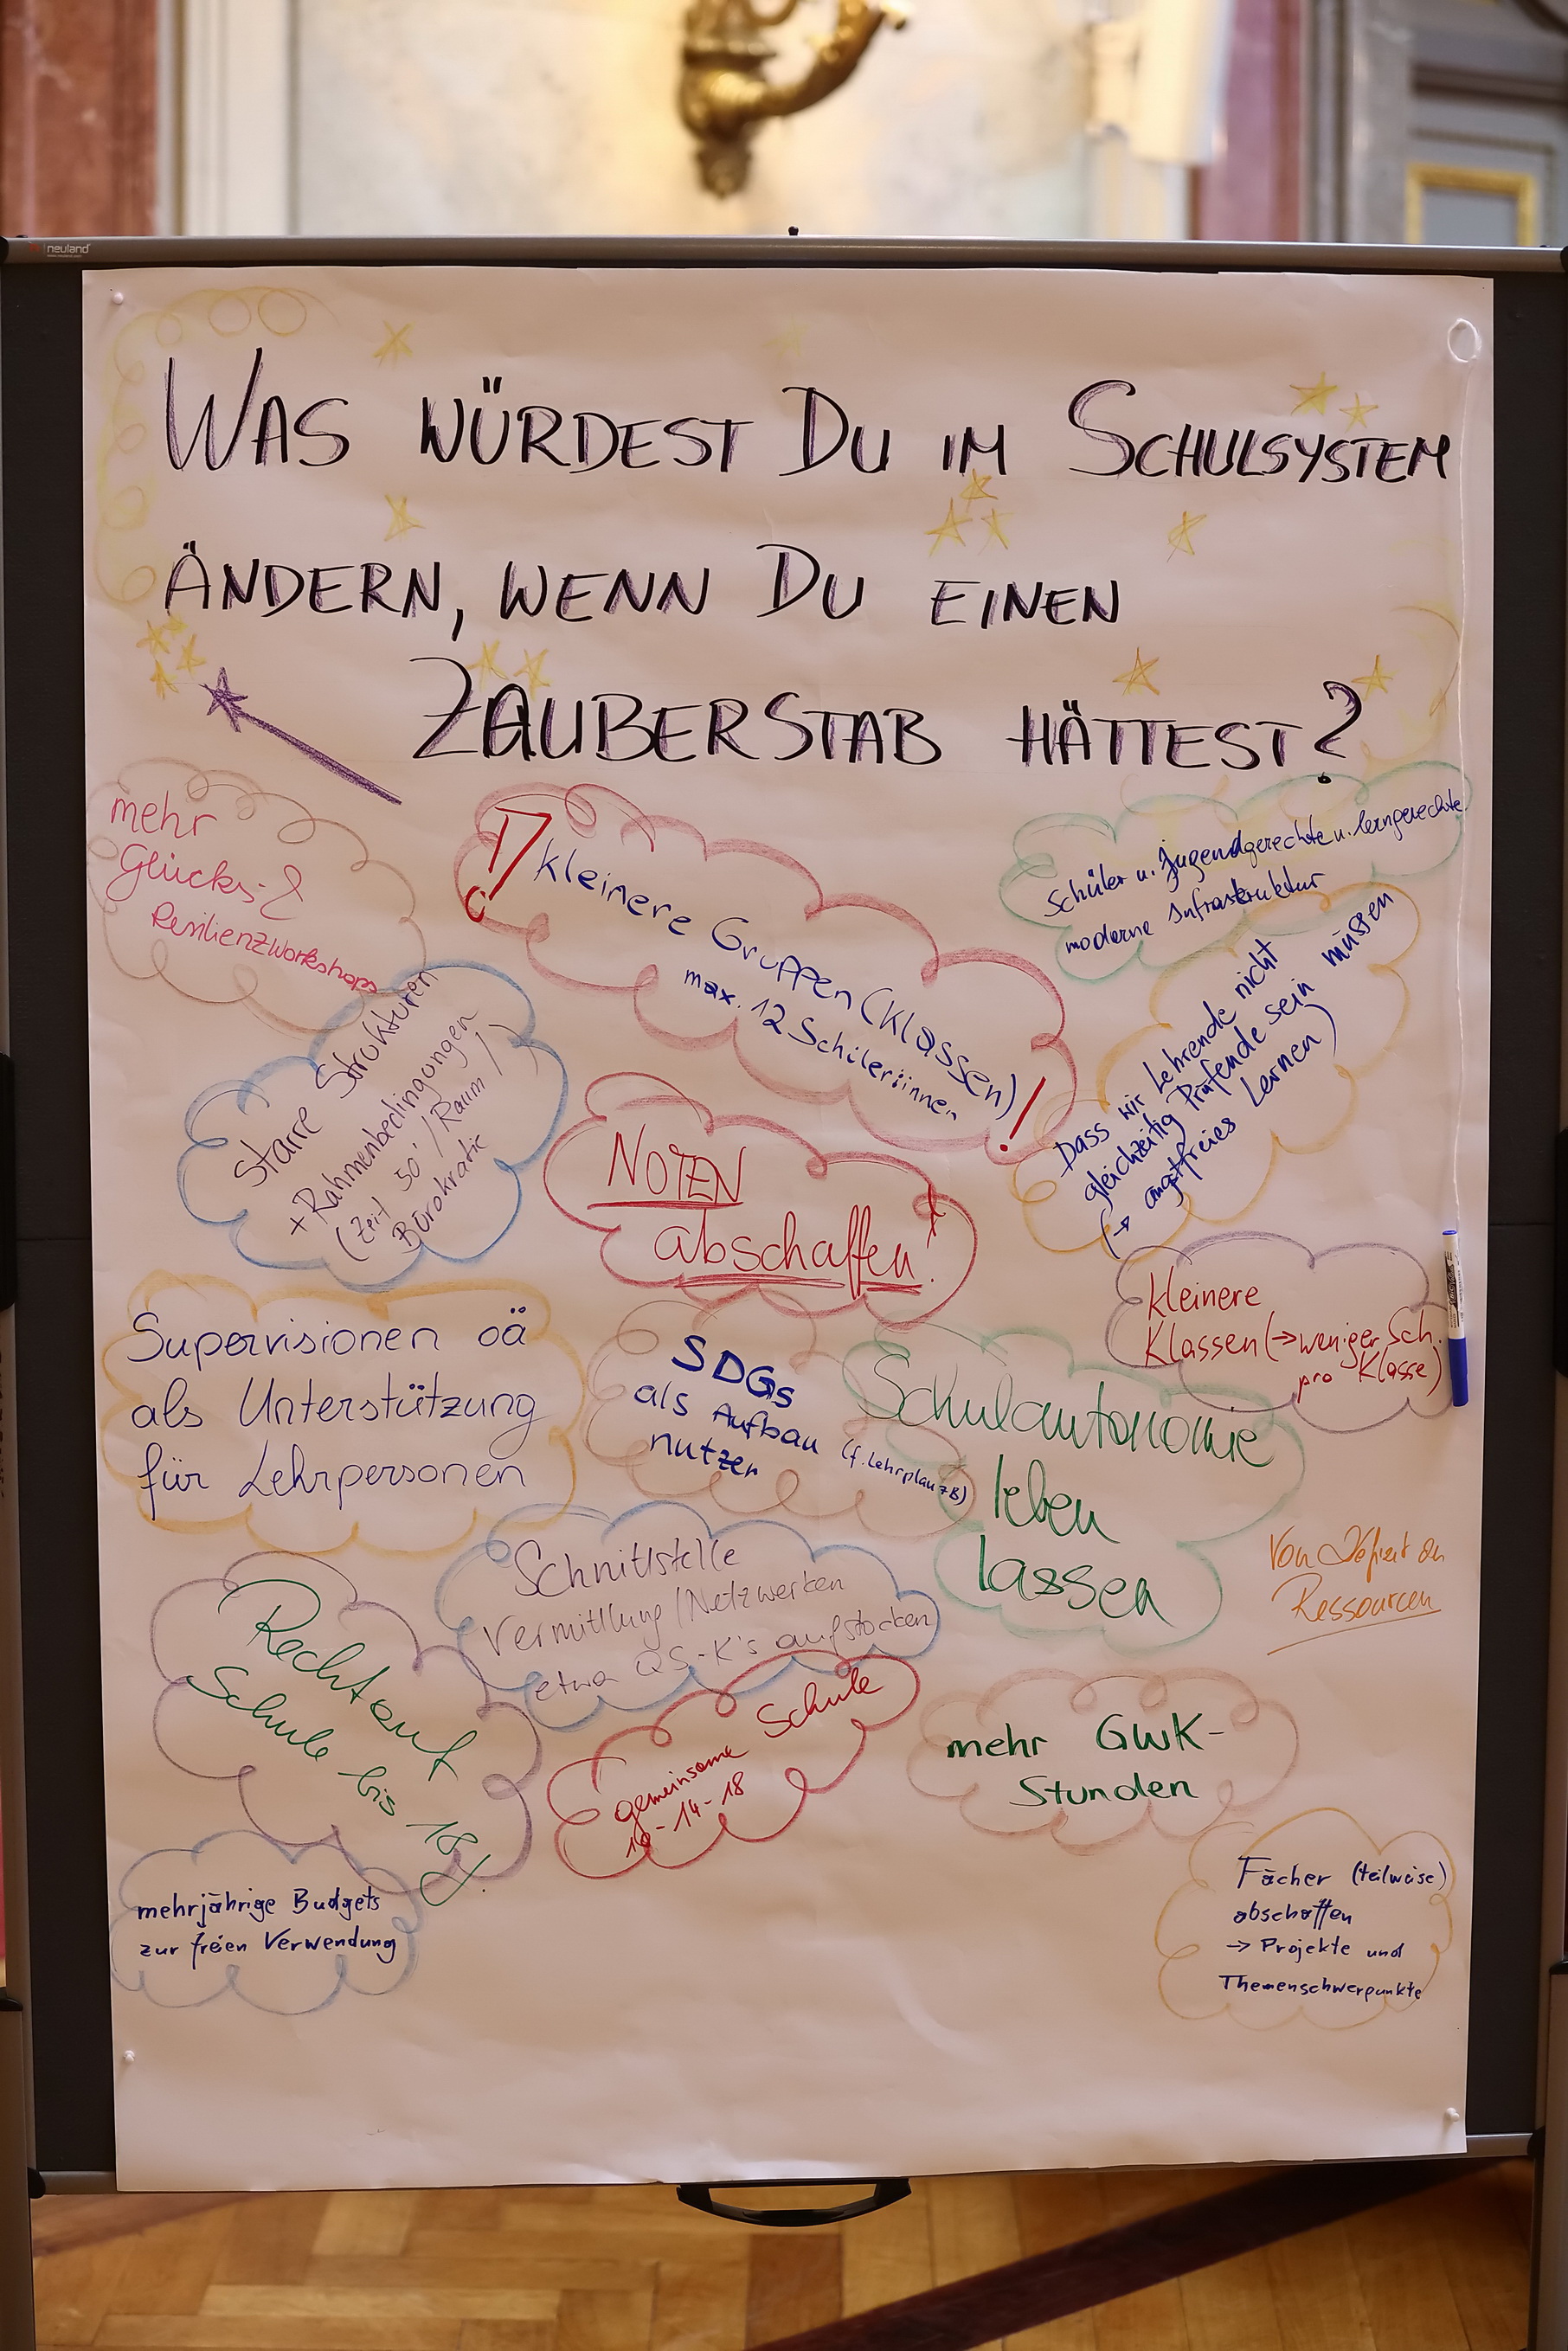 neuland
WAS WÜRDEST DU IM SCHULSYSTEM
ÄNDERN, WENN DU EINEN
ZAUBERSTAB HÄTTEST?
mehr
Glücks- &
Resilienzworkshops
kleinere Gruppen (Klassen)
max. 12 Schüler:innen
!
Schüler u. jugendgerechte u. lerngerechte
moderne Infrastruktur
Starre Strukturen
+ Rahmenbedingungen
(Zeit 50' / Raum /)
Bürokratie
Dass wir Lehrende nicht
gleichzeitig Prüfende sein müssen
(→ angstfreies Lernen)
NOTEN
abschaffen!
kleinere
Klassen (→ weniger Sch.
pro Klasse)
Supervisionen oä
als Unterstützung
für Lehrpersonen
SDGs
als Aufbau (f. Lehrplan zB)
nutzen
Schulautonomie
leben
lassen
Schnittstelle
Vermittlung / Netzwerken
etwa QS-K's aufstocken
Von Defizit zu
Ressourcen
Recht auf
Schule bis 18 J.
gemeinsame Schule
10-14-18
mehr GWK-
Stunden
mehrjährige Budgets
zur freien Verwendung
Fächer (teilweise)
abschaffen
→ Projekte und
Themenschwerpunkte